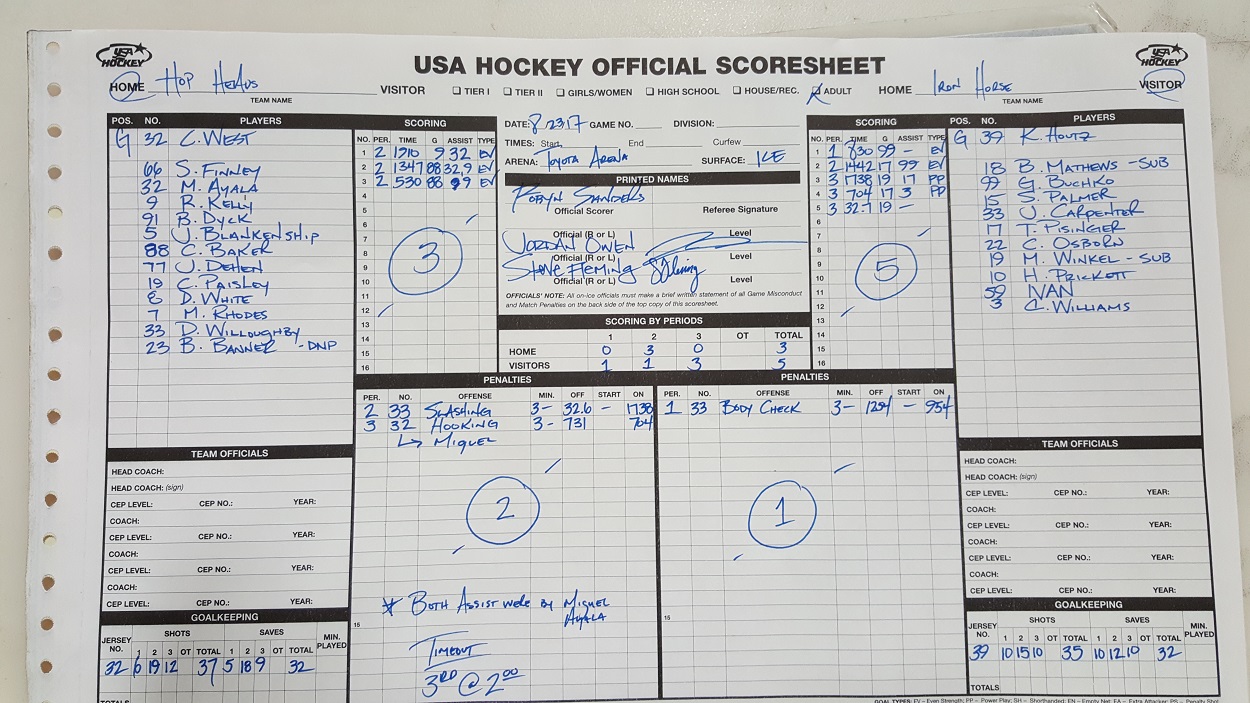 USA HOCKEY
USA HOCKEY OFFICIAL SCORESHEET
USA HOCKEY
HOME VISITOR ☐ TIER I ☐ TIER II ☐ GIRLS/WOMEN ☐ HIGH SCHOOL ☐ HOUSE/REC. ☐ ADULT HOME Iron Horse VISITOR
TEAM NAME TEAM NAME
POS. NO. PLAYERS
G 32 C. West
66 S. Finney
32 M. Ayala
9 R. Kelly
91 B. Dyck
5 J. Blankenship
88 C. Baker
77 J. Dehen
19 C. Paisley
8 D. White
7 M. Rhodes
33 D. Willoughby
23 B. Banner - DNP
SCORING
NO. PER. TIME G ASSIST TYPE
1 2 1710 9 32 EV
2 2 1347 88 32,9 EV
3 2 530 88 99 EV
4
5
6
7
8
9
10
11
12
13
14
15
16
3
DATE: 8/2317 GAME NO. DIVISION:
TIMES: Start End Curfew
ARENA: Toyota Arena SURFACE: ICE
PRINTED NAMES
Robyn Sanders
Official Scorer Referee Signature
Official (R or L) Level
Jordan Owen
Official (R or L) Level
Steve Fleming
Official (R or L) Level
OFFICIALS' NOTE: All on-ice officials must make a brief written statement of all Game Misconduct
and Match Penalties on the back side of the top copy of this scoresheet.
SCORING BY PERIODS
1 2 3 OT TOTAL
HOME 0 3 0 3
VISITORS 1 1 3 5
SCORING
NO. PER. TIME G ASSIST TYPE
1 1 830 99 - EV
2 2 1442 17 99 EV
3 3 1738 19 17 PP
4 3 704 17 3 PP
5 3 32.7 19 -
6
7
8
9
10
11
12
13
14
15
16
5
POS. NO. PLAYERS
G 39 K. Houtz
18 B. Mathews - SUB
99 G. Buchko
15 S. Palmer
33 J. Carpenter
17 T. Pisinger
22 C. Osborn
19 M. Winkel - SUB
10 H. Prickett
59 Ivan
3 C. Williams
PENALTIES
PER. NO. OFFENSE MIN. OFF START ON
2 33 Slashing 3- 32.6 - 1738
3 32 Hooking 3- 731 704
↳ Miguel
2
15
* Both Assist were by Miguel
Ayala
Timeout
3RD @ 2:00
PENALTIES
PER. NO. OFFENSE MIN. OFF START ON
1 33 Body Check 3- 1254 - 954
1
15
TEAM OFFICIALS
HEAD COACH:
HEAD COACH: (sign)
CEP LEVEL: CEP NO.: YEAR:
COACH:
CEP LEVEL: CEP NO.: YEAR:
COACH:
CEP LEVEL: CEP NO.: YEAR:
COACH:
CEP LEVEL: CEP NO.: YEAR:
GOALKEEPING
JERSEY NO. SHOTS SAVES MIN. PLAYED
1 2 3 OT TOTAL 1 2 3 OT TOTAL
32 6 19 12 37 5 18 9 32
TOTALS
TEAM OFFICIALS
HEAD COACH:
HEAD COACH: (sign)
CEP LEVEL: CEP NO.: YEAR:
COACH:
CEP LEVEL: CEP NO.: YEAR:
COACH:
CEP LEVEL: CEP NO.: YEAR:
COACH:
CEP LEVEL: CEP NO.: YEAR:
GOALKEEPING
JERSEY NO. SHOTS SAVES MIN. PLAYED
1 2 3 OT TOTAL 1 2 3 OT TOTAL
39 10 15 10 35 10 12 10 32
TOTALS
GOAL TYPES: EV – Even Strength; PP – Power Play; SH – Shorthanded; EN – Empty Net; EA – Extra Attacker; PS – Penalty Shot